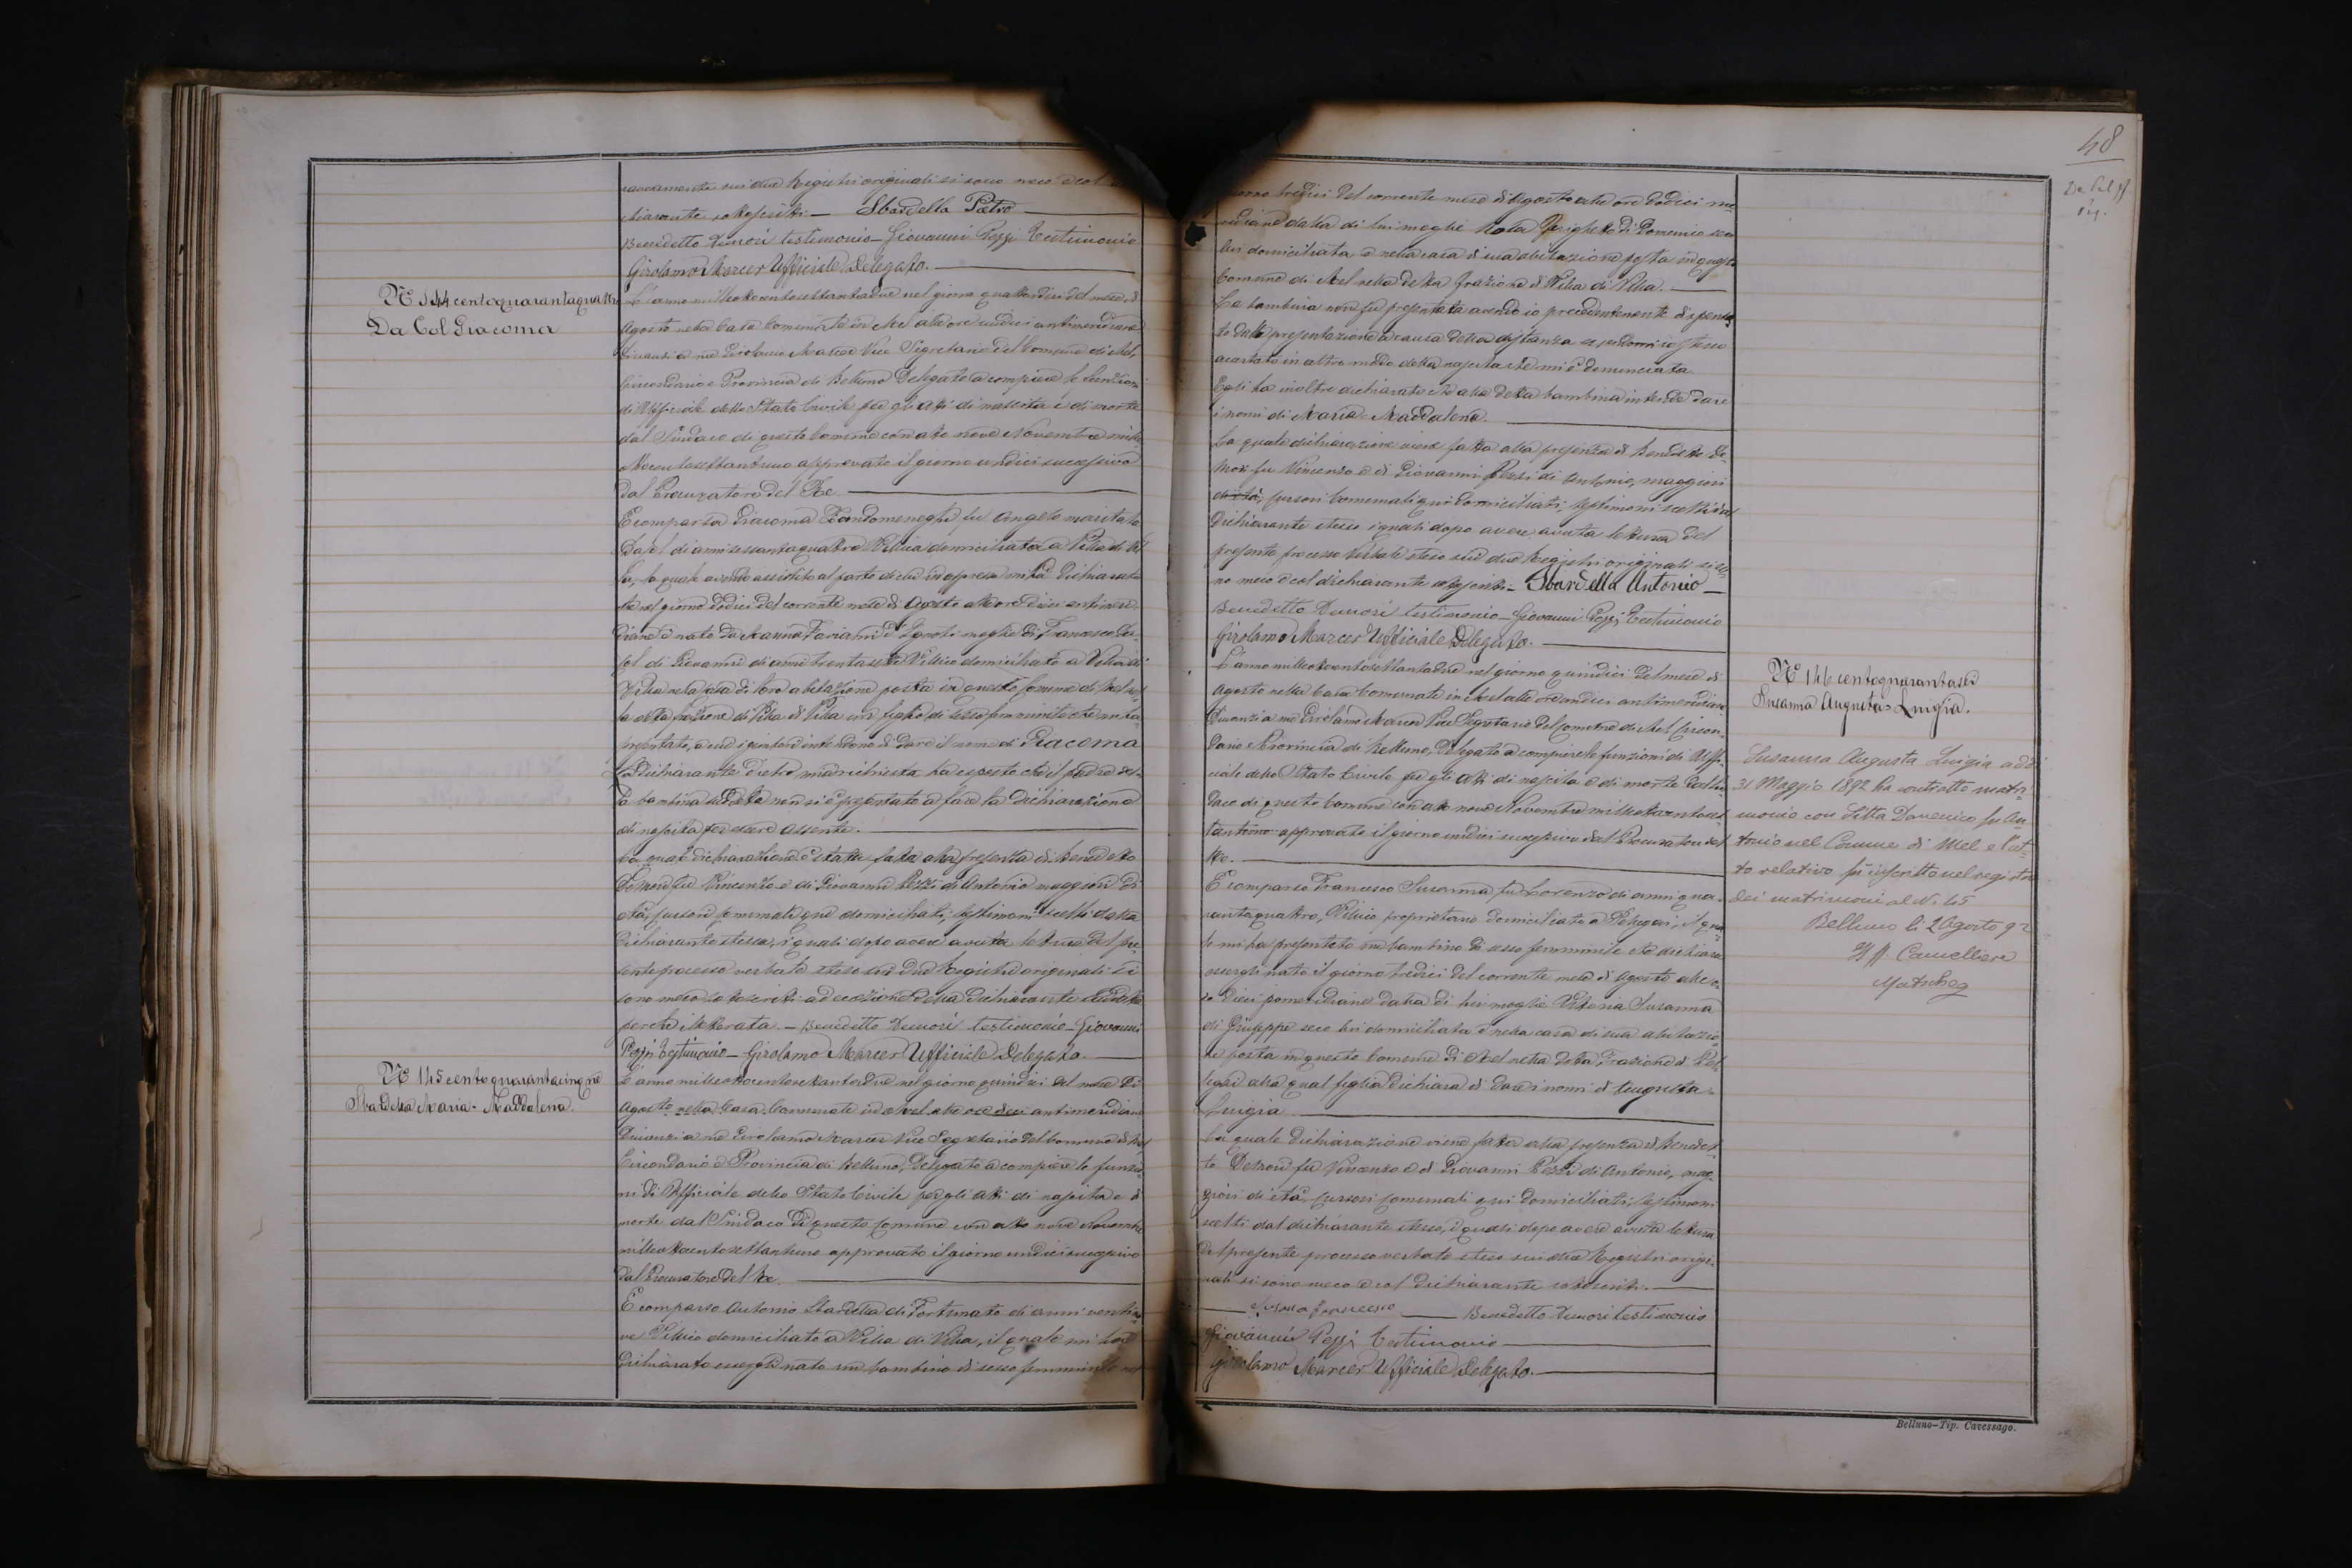 ravedamente sui due Registri originali si sono meco e col
chiarante sottoscritti. — Sbardella Pietro
Benedetto Demori testimonio — Giovanni Pozzi Testimonio
Girolamo Marcer Ufficiale Delegato.
N. 144 centoquarantaquattro
Da Col Giacoma
L'anno milleottocentosettantadue nel giorno quattordici del mese di
Agosto nella Casa Comunale in Mel alle ore undici antimeridiane
Dinanzi a me Girolamo Marcer Vice Segretario del Comune di Mel,
Circondario e Provincia di Belluno Delegato a compiere le funzioni
di Ufficiale dello Stato Civile per gli atti di nascita e di morte
dal Sindaco di questo Comune con atto nove Novembre mille
ottocentosettantuno approvato il giorno undici successivo
dal Procuratore del Re.
È comparsa Giacoma Zandomeneghi fu Angelo maritata
Dacol di anni sessantaquattro Villica domiciliata a Villa di Vil
la, la quale avendo assistito al parto di cui in appresso mi ha dichiarato
che nel giorno dodici del corrente mese di Agosto alle ore dieci antimeri
diane è nato da Marina d'Ignoti moglie di Francesco Da
Col di Giovanni di anni trentasette Villico domiciliato a Villa di
Villa nella casa di loro abitazione posta in questo Comune di Mel nel
la detta frazione di Villa di Villa una figlia di sesso femminile che mi ha
presentato, a cui i genitori intendono di dare il nome di Giacoma
La dichiarante dietro mia richiesta ha esposto che il padre del
la bambina suddetta non si è presentato a fare la dichiarazione
di nascita per essere assente.
La quale dichiarazione è stata fatta alla presenza di Benedetto
Demori fu Vincenzo e di Giovanni Pozzi di Antonio maggiori di
età, cursori comunali qui domiciliati, testimoni scelti dalla
dichiarante stessa, i quali dopo avere avuta lettura del pre
sente processo verbale steso sui due Registri originali si
sono meco sottoscritti ad eccezione della dichiarante suddetta
perchè illetterata. — Benedetto Demori testimonio — Giovanni
Pozzi Testimonio — Girolamo Marcer Ufficiale Delegato.
N. 145 centoquarantacinque
Sbardella Maria-Maddalena.
L'anno milleottocentosettantadue nel giorno quindici del mese di
Agosto nella Casa Comunale in Mel alle ore dieci antimeridiane
Dinanzi a me Girolamo Marcer Vice Segretario del Comune di Mel
Circondario e Provincia di Belluno, Delegato a compiere le funzio
ni di Ufficiale dello Stato Civile per gli atti di nascita e di
morte dal Sindaco di questo Comune con atto nove Novembre
milleottocentosettantuno approvato il giorno undici successivo
dal Procuratore del Re.
È comparso Antonio Sbardella di Fortunato di anni ventino
ve Villico domiciliato a Villa di Villa, il quale mi ha
dichiarato essergli nato un bambino di sesso femminile nel
48
giorno tredici del corrente mese di Agosto alle ore dodici me
ridiane dalla di lui moglie di Domenico seco
lui domiciliata e nella casa di sua abitazione posta in questo
Comune di Mel nella detta frazione di Villa di Villa.
La bambina non fu presentata avendo io precedentemente dispensa
to dalla presentazione a causa della distanza ed essendomi io stesso
accertato in altro modo della nascita che mi è denunciata
Egli ha inoltre dichiarato che alla detta bambina intende dare
i nomi di Maria-Maddalena.
La quale dichiarazione viene fatta alla presenza di Benedetto De
mori fu Vincenzo e di Giovanni Pozzi di Antonio, maggiori
di età, cursori comunali qui domiciliati, testimoni scelti dal
dichiarante stesso i quali dopo avere avuta lettura del
presente processo verbale steso sui due Registri originali si so
no meco e col dichiarante sottoscritti. — Sbardella Antonio —
Benedetto Demori testimonio — Giovanni Pozzi Testimonio
Girolamo Marcer Ufficiale Delegato.
L'anno milleottocentosettantadue nel giorno quindici del mese di
Agosto nella Casa Comunale in Mel alle ore undici antimeridiane
Dinanzi a me Girolamo Marcer Vice Segretario del Comune di Mel Circon
dario e Provincia di Belluno, Delegato a compiere le funzioni di Uffi
ciale dello Stato Civile per gli atti di nascita e di morte dal Sin
daco di questo Comune con atto nove Novembre milleottocentoset
tantuno approvato il giorno undici successivo dal Procuratore del
Re.
È comparso Francesco Susanna fu Lorenzo di anni qua
rantaquattro, Villico proprietario domiciliato a Pellegai, il qua
le mi ha presentato un bambino di sesso femminile che dichiara
essergli nato il giorno tredici del corrente mese di Agosto alle o
re dieci pomeridiane dalla di lui moglie Vittoria Susanna
di Giuseppe seco lui domiciliata e nella casa di sua abitazio
ne posta in questo Comune di Mel nella detta Frazione di Pel
legai alla qual figlia dichiara di dare i nomi di Augusta-
Luigia
La quale dichiarazione viene fatta alla presenza di Benedet
to Demori fu Vincenzo e di Giovanni Pozzi di Antonio, mag
giori di età, cursori comunali qui domiciliati, testimoni
scelti dal dichiarante stesso, i quali dopo avere avuta lettura
del presente processo verbale steso sui due Registri origi
nali si sono meco e col dichiarante sottoscritti.
Susanna Francesco — Benedetto Demori testimonio
Giovanni Pozzi Testimonio
Girolamo Marcer Ufficiale Delegato.
N. 146 centoquarantasei
Susanna Augusta-Luigia.
Susanna Augusta Luigia addì
31 Maggio 1892 ha contratto matri
monio con Domenico fu An
tonio nel Comune di Mel e l'at
to relativo fu inscritto nel registro
dei matrimoni al N. 45
Belluno li 2 Agosto 92
Il ff. Cancelliere
Belluno-Tip. Cavessago.